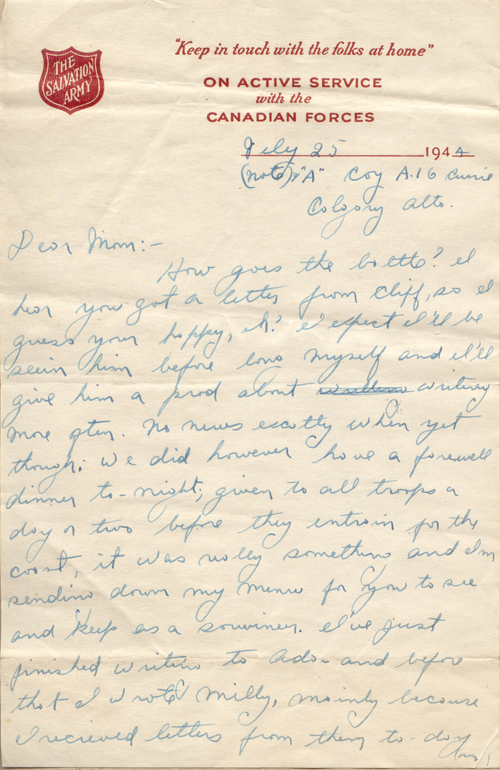 THE
SALVATION
ARMY
"Keep in touch with the folks at home"
ON ACTIVE SERVICE
with the
CANADIAN FORCES
July 25 1944
(note) "A" Coy A.16 Currie
Calgary Alta.
Dear Mom:-
How goes the battle? I
hear you got a letter from Cliff, so I
guess your happy, eh? I expect I'll be
seein him before long myself and I'll
give him a prod about writing
more often. No news exactly when yet
though. We did however have a farewell
dinner to-night, given to all troops a
day or two before they entrain for the
coast, it was really something and I'm
sending down my menu for you to see
and keep as a souviner. I've just
finished writing to Ada- and before
that I wrote Milly, mainly because
I recieved letters from them to-day